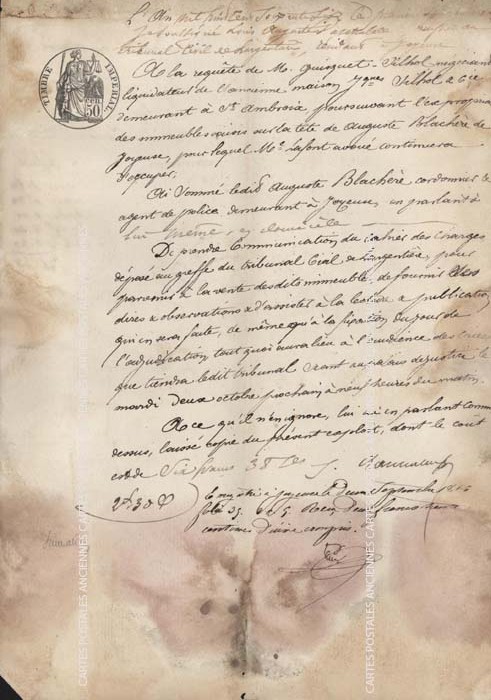 L'An mil huit cent soixante six le
Tribunal Civil de Largentière,
TIMBRE IMPÉRIAL
50
A la requête de M. Guirguet-Silhol négociant
liquidateur de l'ancienne maison Silhol & Cie
demeurant à St Ambroix poursuivant l'expropriation
des immeubles saisis sur la tête de Auguste Blachère de
Joyeuse, pour lequel Me Lafont avoué continuera
d'occuper.
Ai sommé ledit Auguste Blachère cordonnier et
agent de police demeurant à Joyeuse, en parlant à
lui même, en domicile
De prendre communication du cahier des charges
déposé au greffe du tribunal Civil de Largentière, pour
parvenir à la vente desdits immeubles, de fournir ses
dires & observations & d'assister à la lecture & publication
qui en sera faite, de même qu'à la fixation du jour de
l'adjudication, tout quoi aura lieu à l'audience des criées
que tiendra ledit tribunal séant au palais de justice le
mardi deux octobre prochain à neuf heures du matin.
A ce qu'il n'en ignore, lui ai en parlant comme
dessus, laissé copie du présent exploit, dont le coût
est de six francs
Enregistré à Joyeuse le deux septembre
folio Reçu deux francs
centimes Décime compris.
CARTES POSTALES ANCIENNES CARTES
CARTES POSTALES ANCIENNES CARTES